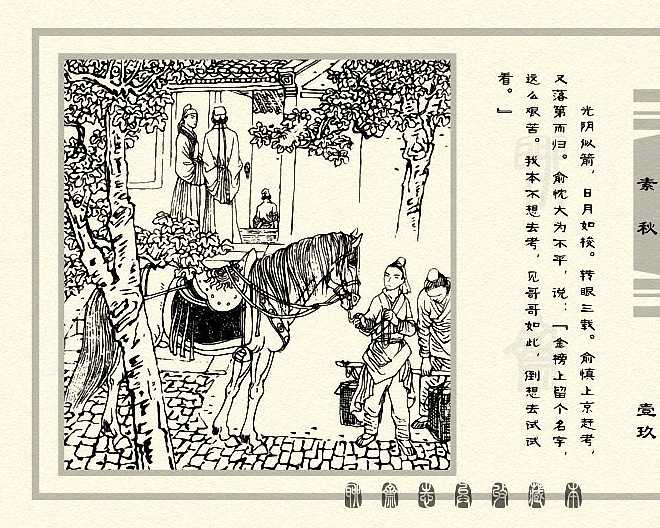 光阴似箭，日月如梭。转眼三载。俞慎上京赶考，
又落第而归。俞忱大为不平，说：『金榜上留个名字，
这么艰苦。我本不想去考，见哥哥如此，倒想去试试
看。』
素秋
壹玖